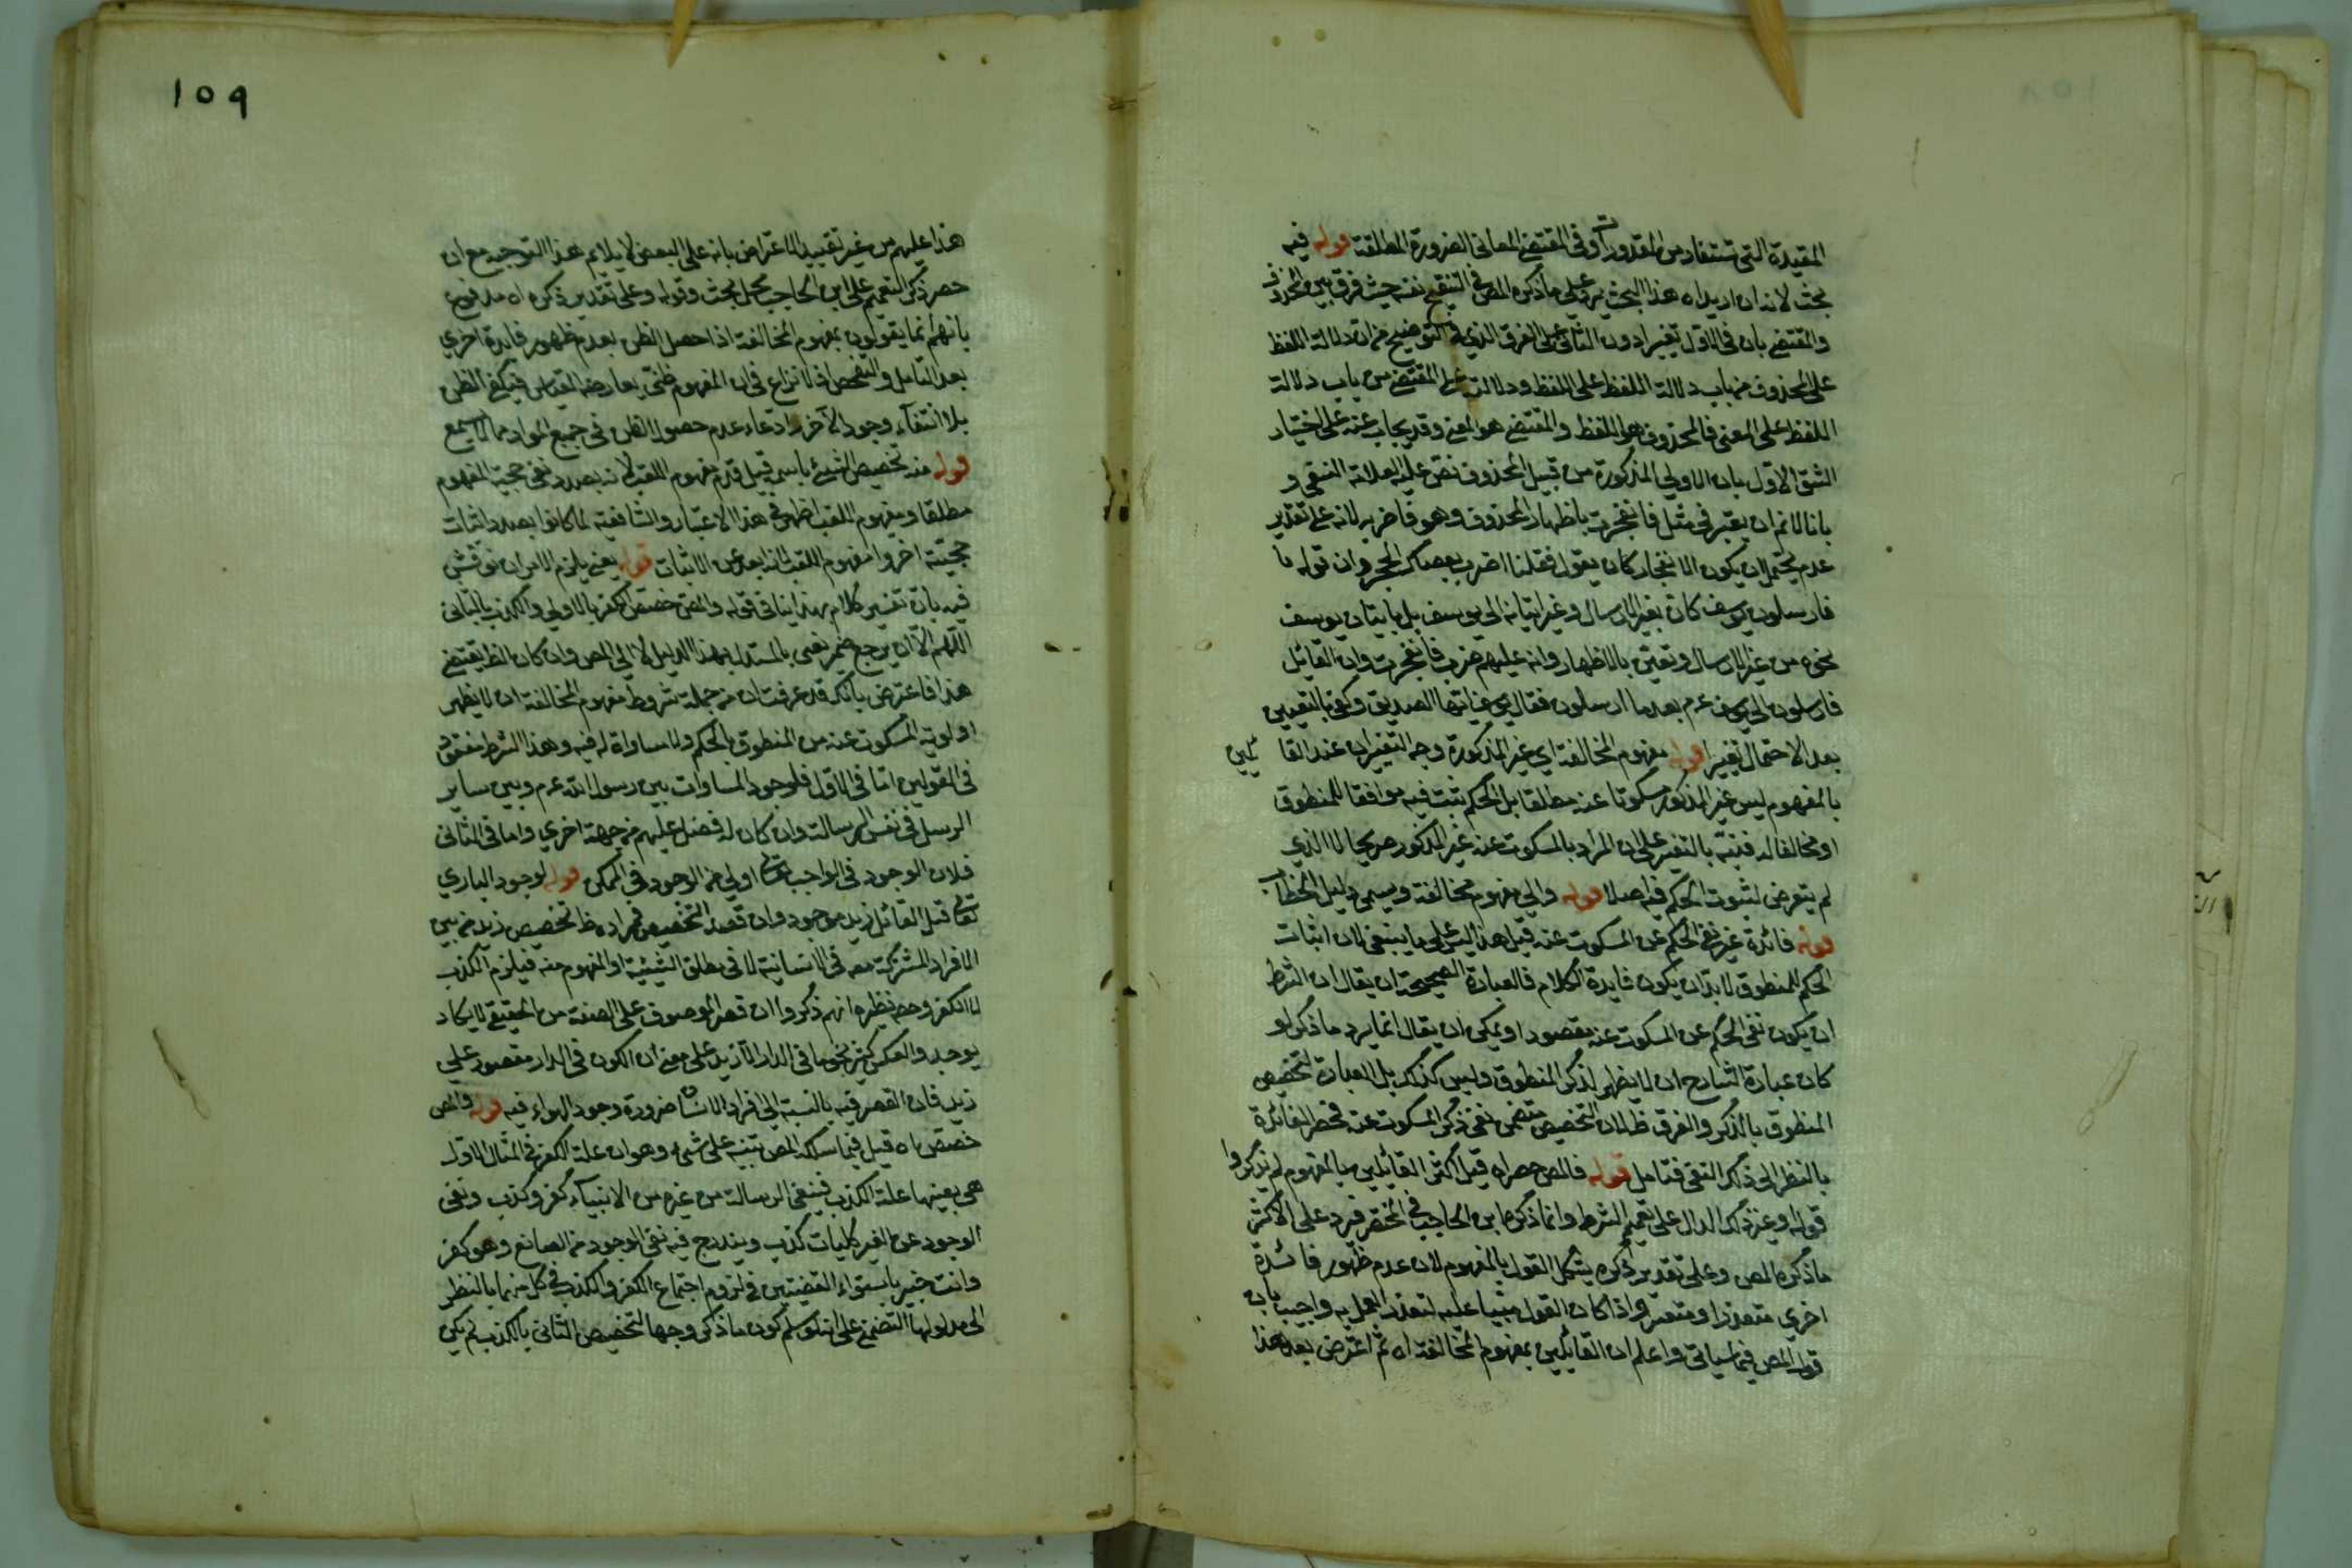 المقيدة التى تستفاد من المقدورات وفى المقتضى المعانى الضرورة المطلقة قوله فيه
بحث لانه ان اريد ان هذا البحث يرد على ما ذكره المص فى التنقيح نفسه حيث فرق بين المحذوف
والمقتضى بان فى الاول تغييرا دون الثانى على الفرق الذى فى التوضيح من ان دلالة اللفظ
على المحذوف من باب دلالة اللفظ على اللفظ ودلالته على المقتضى من باب دلالة
اللفظ على المعنى فالمحذوف هو اللفظ والمقتضى هو المعنى وقد يجاب عنه على اختيار
الشق الاول بان الاولى المذكورة من قبيل المحذوف نص عليه العلامة النسفى و
بانا لانم ان يعتبر فى مثل فانفجرت باظهار المحذوف وهو فاضربه لانه على تقدير
عدم يحتمل ان يكون الانفجار كان يقول فقلنا اضرب بعصاك الحجر وان قوله ما
فارسلون يوسف كان بغير الارسال وغير اتيانه الى يوسف بل باتيان يوسف
نحوه من غير الارسال وتعين بالاظهار وانه عليهم ضرب فانفجرت وان القائل
فارسلون الى يوسف عزم بعدما ارسلون فقال يوسف ايها الصديق وكفى بالتعيين
بعد الاحتمال تغييرا قوله مفهوم المخالفة اى غير المذكورة وجه التغييران عند القا ئلين
بالمفهوم ليس غير المذكور مسكوتا عنه مطلقا بل الحكم يثبت فيه موافقا للمنطوق
او مخالفا له فنبه بالتفسير على ان المراد بالمسكوت عنه غير المذكور صريحا لا الذى
لم يتعرض لثبوت الحكم فيه اصلا قوله والى مفهوم مخالفة ويسمى دليل الخطاب
قوله فائدة غير نفى الحكم عن المسكوت عنه قيل هذا ليس على ما ينبغى لان اثبات
الحكم للمنطوق لابد ان يكون فايدة الكلام فالعبارة الصحيحة ان يقال ان الشرط
ان يكون نفى الحكم عن المسكوت عنه مقصودا ويمكن ان يقال انما يرد ما ذكر لو
كان عبارة الشارح ان لا يظهر لذكر المنطوق وليس كذلك بل العبارة لتخصيص
المنطوق بالذكر والفرق ظ لان التخصيص يتضمن نفى ذكر المسكوت عنه فحصر الفائدة
بالنظر الى ذكر النفى فتامل قوله فالمص حصر اه قيل اكثر القائلين بالمفهوم لم يذكروا
قوله وغير ذلك الدال على تعميم الشرط وانما ذكره ابن الحاجب فى المختصر فيرد على الاكثر
ما ذكره المص وعلى تقدير ذكره يشكل القول بالمفهوم لان عدم ظهور فائدة
اخرى متعذرا ومتعسر واذا كان القول مبنيا عليه لتعذر العمل به واجيب بان
قول المص فيما سياتى واعلم ان القائلين بمفهوم المخالفة اه ثم اعترض بعد هذا
١٥٩
هذا عليهم من غير تقييد الاعتراض بانه على البعض لا يلايم هذا التوجيه مع ان
حصر ذكر التعميم على ابن الحاجب محل بحث وقوله وعلى تقدير ذكره اه مدفوع
بانهم انما يقولون بمفهوم المخالفة اذا حصل الظن بعدم ظهور فايدة اخرى
بعد التامل والتفحص اذ لا نزاع فى ان المفهوم ظنى يعارضه القياس فيكفى الظن
بلا انتفاء وجود الآخر وادعاء عدم حصول الظن فى جميع المواد مما لا يسمع
قوله منه تخصيص الشئ باسمه قيل قدم مفهوم اللقب لانه بصدد نفى حجية المفهوم
مطلقا ومفهوم اللقب اظهر فى هذا الاعتبار والشافعية لما كانوا بصدد اثبات
حجيته اخروا مفهوم اللقب لانه ابعد عن الاثبات قوله يعنى يلزم الامران نوقش
فيه بان تفسير كلام بهذا ينافى قوله والمص خصص الكفر بالاولى والكذب بالثانى
اللهم الا ان يرجع ضمير يعنى بالمستدل بهذا الدليل لا الى المص وان كان الظ يقتضى
هذا فاعترض بانك قد عرفت ان من جملة شروط مفهوم المخالفة ان لا يظهر
اولوية المسكوت عنه من المنطوق بالحكم ولا مساواة له فيه وهذا الشرط مفقود
فى القولين اما فى الاول فلوجود المساوات بين رسول الله عم وبين ساير
الرسل فى نفس الرسالة وان كان له فضل عليهم من جهة اخرى واما فى الثانى
فلان الوجود فى الواجب تعالى اولى من الوجود فى الممكن قوله لوجود البارى
تعالى قيل القائل زيد موجود وان قصد التخصيص فمراده ظ تخصيص زيد من بين
الافراد المشتركة معه فى الانسانية لا فى مطلق الشيئية او المفهوم منه فيلزم الكذب
لا الكفر وحصر نظيره انهم ذكروا ان قصر الموصوف على الصفة من الحقيقى لا يكاد
يوجد والعكس كثير نحو ما فى الدار الا زيد على معنى ان الكون فى الدار مقصور على
زيد فان القصر فيه بالنسبة الى افراد الانسان ضرورة وجود الهواء فيه قوله والمص
خصص اه قيل فيما سلكه المص تنبيه على شئ وهو ان علة الكفر فى المثال الاول
هى بعينها علة الكذب فينفى الرسالة من غيره من الانبياء كفر وكذب ونفى
الوجود عن الغير كليات كذب ويندرج فيه نفى الوجود من الصانع وهو كفر
وانت خبير باستواء القضيتين فى لزوم اجتماع الكفر والكذب فى كل منهما بالنظر
الى مدلولها التضمنى على انه لو سلم كون ما ذكر وجها لتخصيص الثانى بالكذب لم يكن